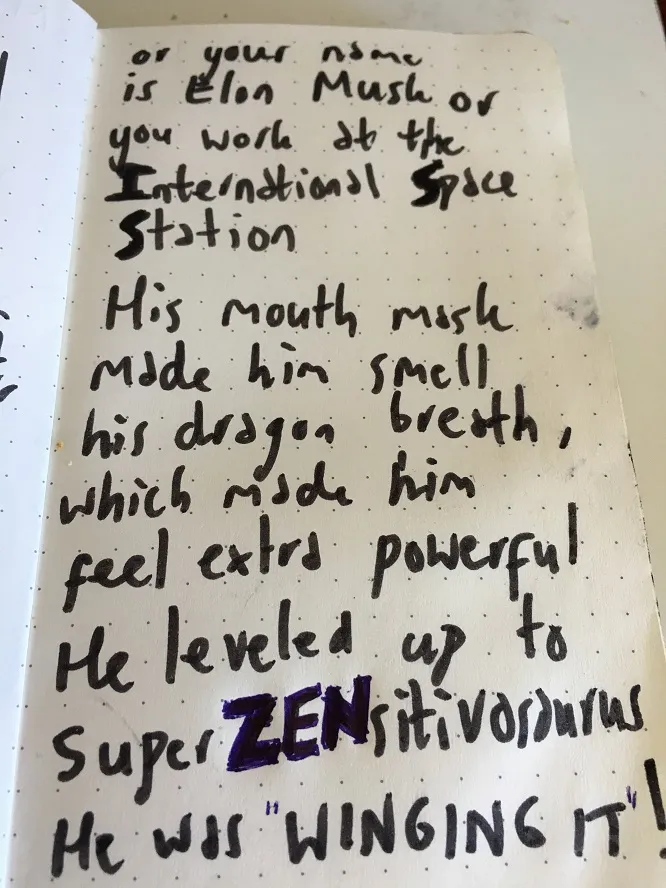 or your name
is Elon Musk or
you work at the
International Space
Station
His mouth mask
made him smell
his dragon breath,
which made him
feel extra powerful
He leveled up to
Super ZENsitivosaurus
He was "WINGING IT"!